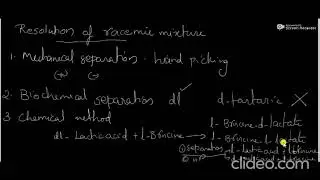 Resolution of racemic mixture
1. Mechanical separation - hand picking
(+) (-)
2. Biochemical separation dl ✓ d-tartaric ✗
3. Chemical method l-Brucine d-lactate
dl-Lactic acid + l-Brucine → l-Brucine l-lactate
① separation
celedeo.com